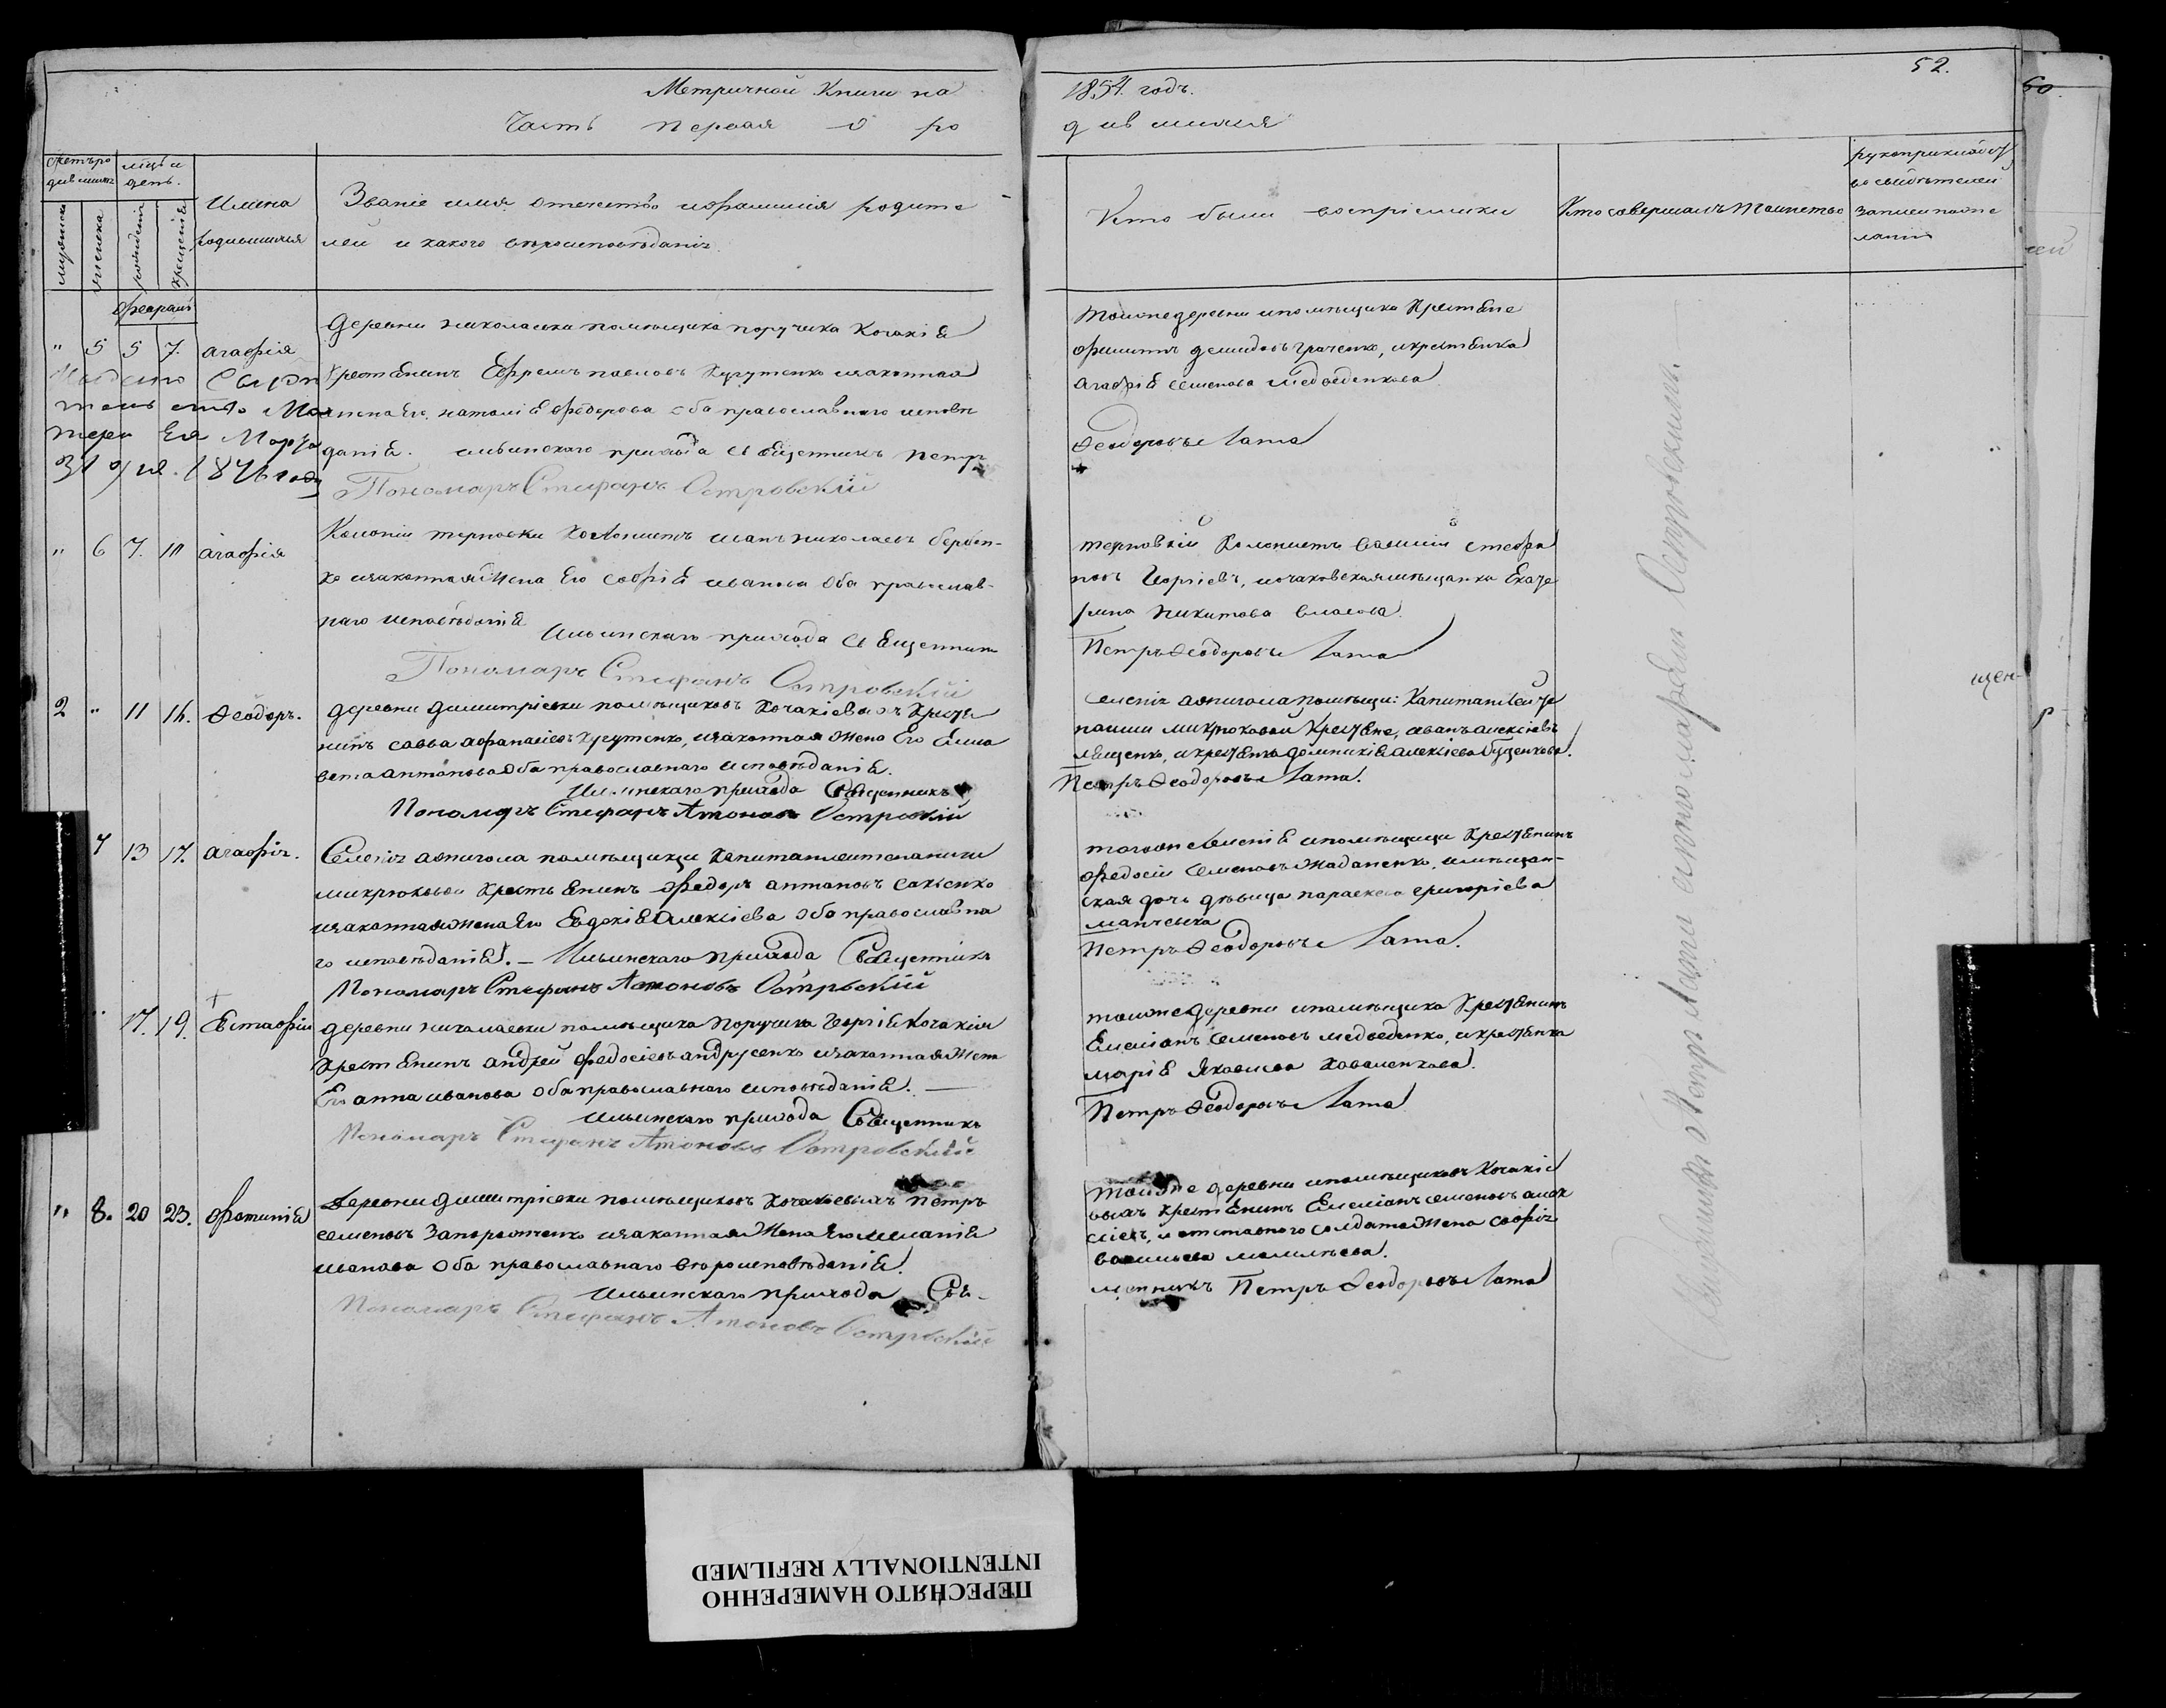 52.
Метричной Книги на 1854. годъ.
Часть первая о родившихся
Счетъ родившихся
мужеска
женска
мѣсяцъ и день.
рожденія
крещенія
Имена родившихся
Званіе имя отечество и фамилія родителей и какого вѣроисповѣданія.
Кто были воспріемники
Кто совершалъ Таинство
рукоприкладство свидѣтелей записи по желанію
февраль
" 5 5 7. агафія
Выдано Свидѣтельство Матери Ея Марта 31 дня. 1876 года
деревни николаевки помѣщика поручика Кочакіѣ
крестьѣнинъ Ефремъ павловъ Хурутенко изаконная
жена Его наталіѣ федорова оба православнаго исповѣ
даніѣ. ильинскаго прихода свѣщенникъ Петръ
Пономаръ Стефанъ Островскій
тойже деревни и помѣщика Крестьѣне
филиппъ демидовъ Граченко, икрестьѣнка
агафіѣ семенова Медведенкова
Ѳеодоровъ Лата
" 6 7. 10 агафія
Колоніи терновки Колонистъ иванъ николаевъ бербен-
ко изаконная Жена Его софіѣ иванова Оба православ-
наго исповѣданіѣ
Ильинскаго прихода свѣщенникъ
Пономаръ Стефанъ Островскій
терновкій Колонистъ василій стефа
новъ Георгіевъ, и очаковская мѣщанка Екате
рина Никитова власова.
Петръ Ѳеодоровъ Лата
2 " 11 14. Ѳеодоръ.
деревни димитріевки помѣщиковъ Кочакіевыхъ Кресте
нинъ савва афанасіевъ Хурутенко, изаконная жена Его Елиса
вета антонова Оба православнаго исповѣданіѣ.
Ильинскаго прихода Свѣщенникъ
Пономаръ Стефанъ Антоновъ Островскій
Селенія аѳнигола помѣщи: Капитанлейте
нанши микрюковой Крестьѣне, иванъ алексіевъ
Лещенко, и крестьѣнка домникіѣ алексіева Гуценкова.
Петръ Ѳеодоровъ Лата.
7 13 17. агафія.
Селенія аѳнигола помѣщицы Капитанлейтенанши
микрюковой крестьѣнинъ Федоръ антоновъ саксенко
изаконная жена Его Евдокіѣ Алексіева Оба православна
го исповѣданіѣ. — Ильинскаго прихода Свѣщенникъ
Пономаръ Стефанъ Антоновъ Островскій
тогоже селеніѣ и помѣщицы Крестьѣнинъ
федосій Семеновъ Жаданенко, и мѣщан-
ская дочь дѣвица параскева григоріева
манчевска
Петръ Ѳеодоровъ Лата.
17. 19. Евстафій
деревни николаевки помѣщика Поручика Георгіѣ Кочакіѣ
Крестьѣнинъ андрей федосіевъ андрусенко изаконная Жена
Его анна иванова Оба православнаго исповѣданіѣ. —
Ильинскаго прихода Свѣщенникъ
Пономаръ Стефанъ Антоновъ Островскій
тойже деревни и помѣщика Крестьѣнинъ
Емеліанъ Семеновъ медведенко, и крестьѣнка
маріѣ Яковлева Коваленкова.
Петръ Ѳеодоровъ Лата
" 8. 20 23. фотиніѣ
Деревни димитріевки помѣщиковъ Кочакіевыхъ петръ
семеновъ Запорожченко изаконная Жена Его меланіѣ
иванова Оба православнаго вѣроисповѣданіѣ.
Ильинскаго прихода Свѣ-
Пономаръ Стефанъ Антоновъ Островскій
тойже деревни и помѣщиковъ Кочакіе
выхъ крестьѣнинъ Емеліанъ семеновъ алек
сіевъ, и отставного солдата Жена софія
васильева
щенникъ Петръ Ѳеодоровъ Лата
Священникъ Петръ Лата с пономаремъ Островскимъ.
60
ей
щен-
ПЕРЕСНЯТО НАМЕРЕННО
INTENTIONALLY REFILMED